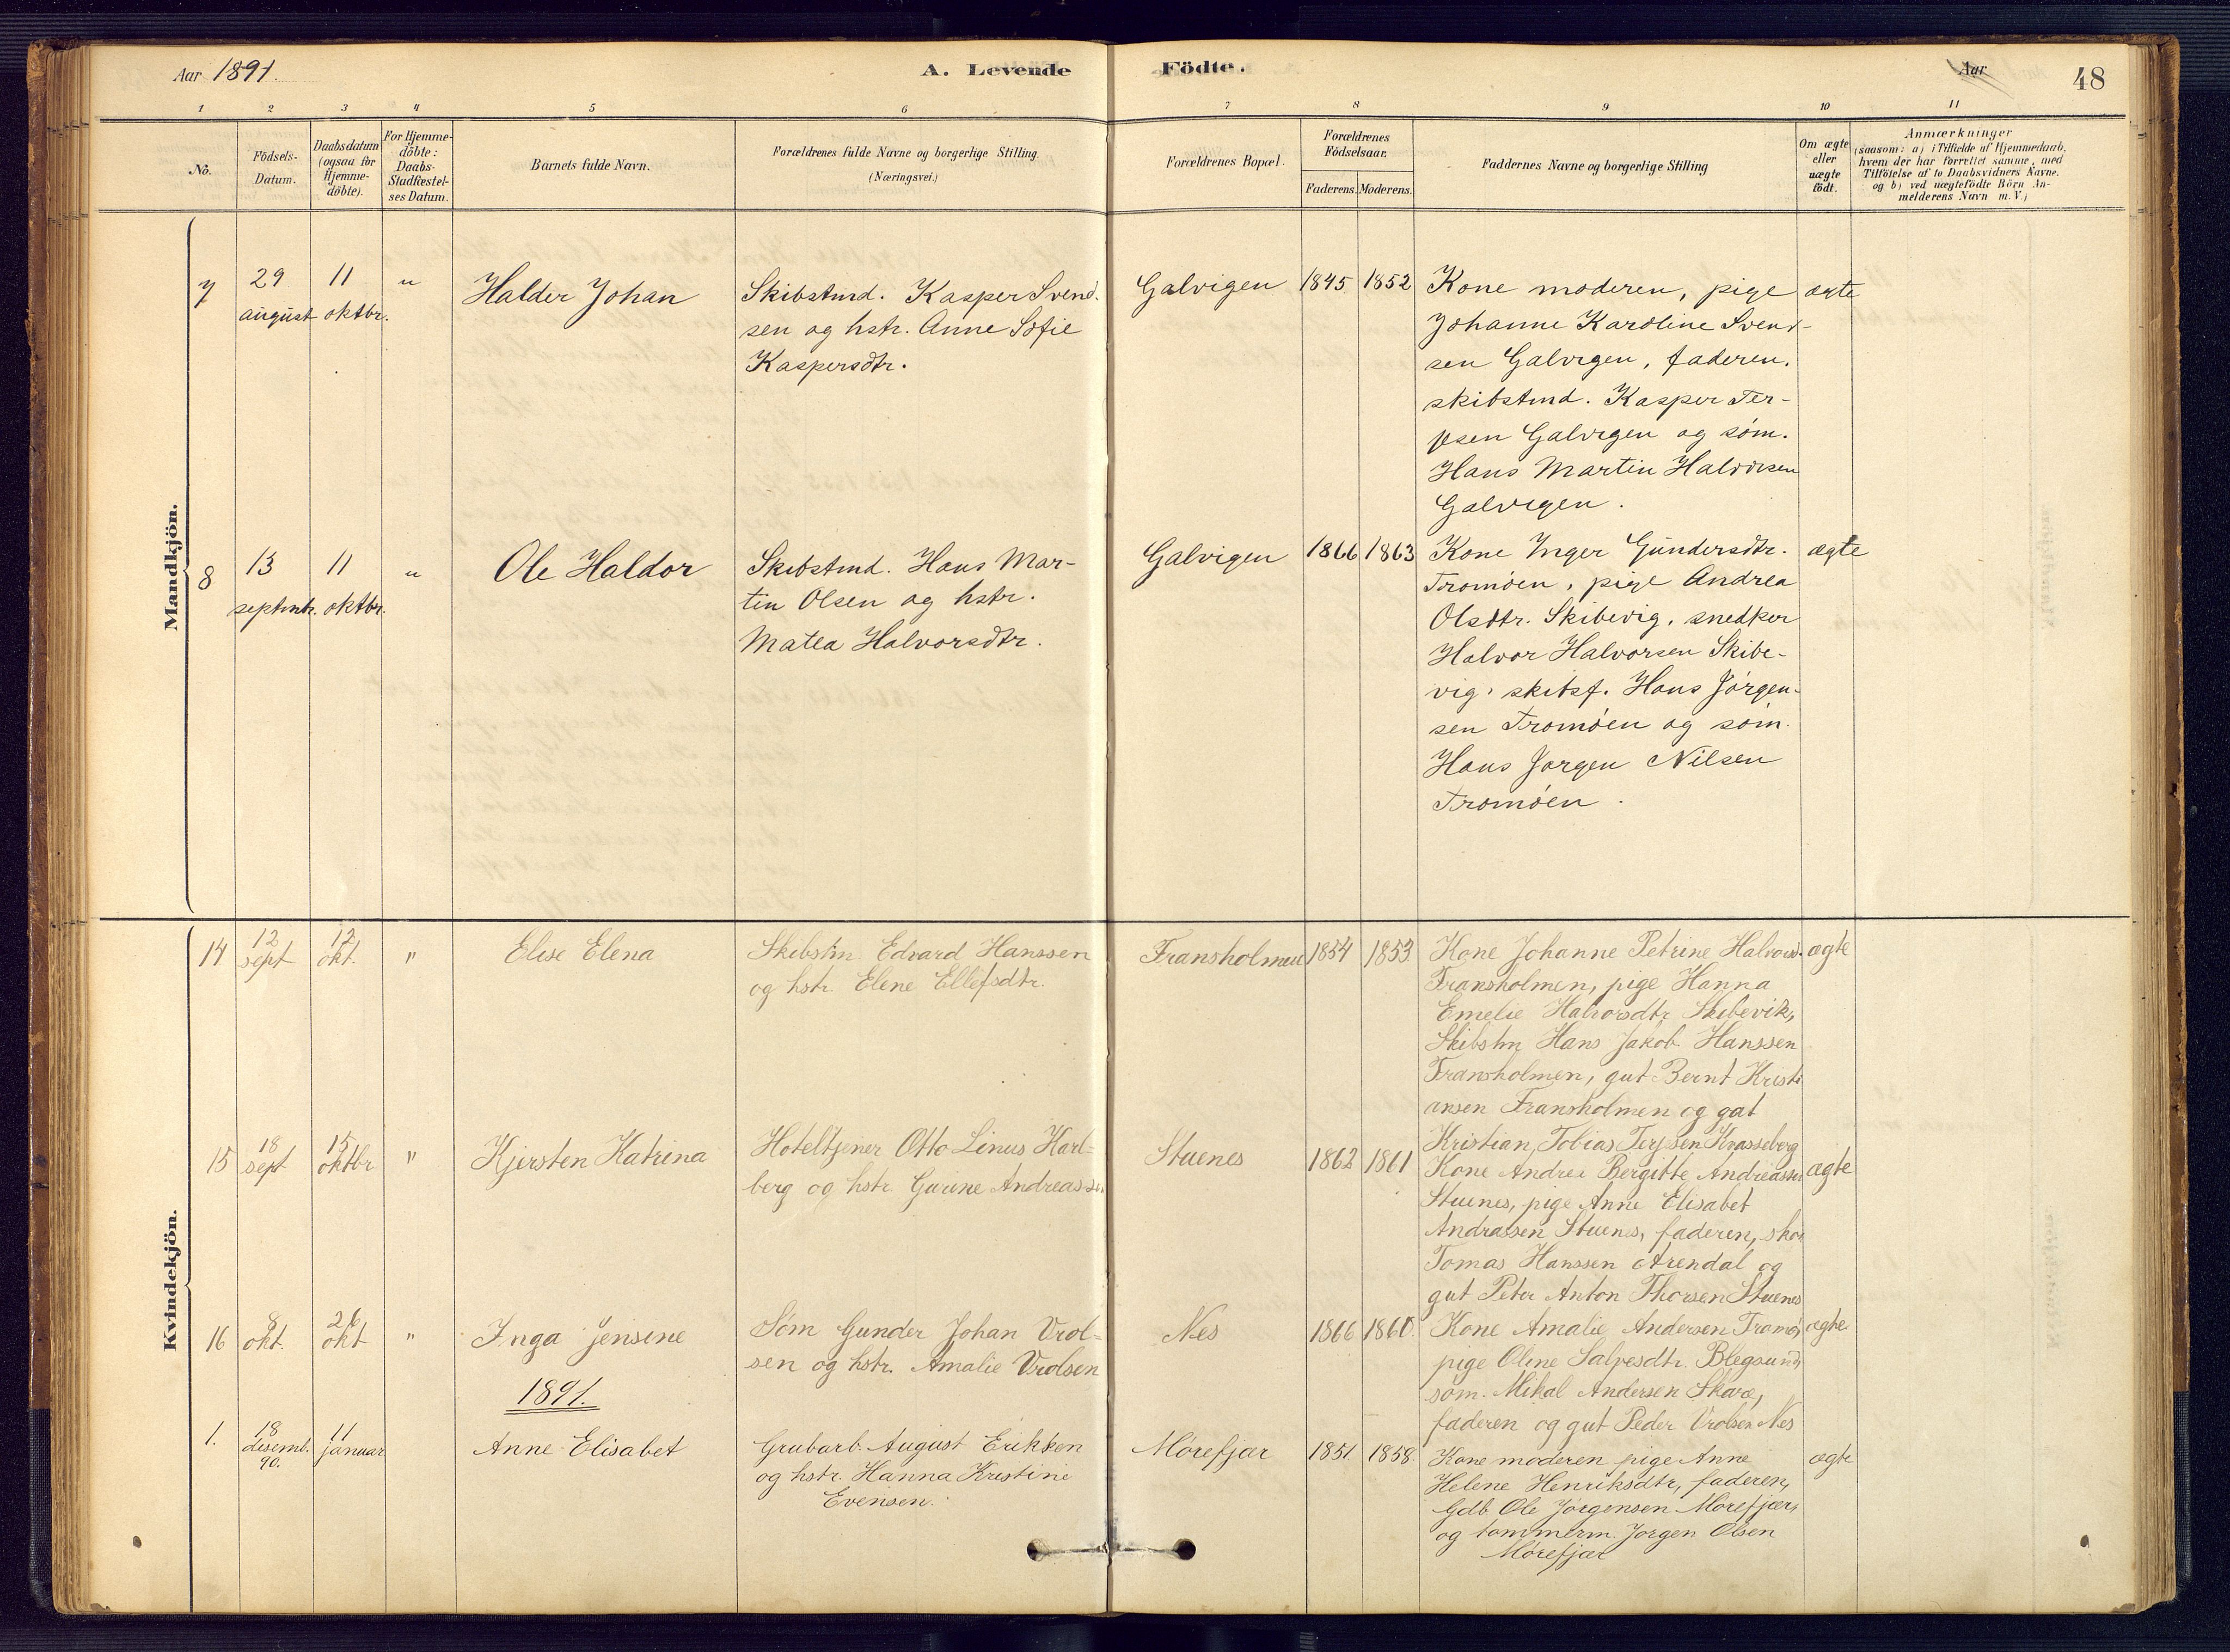 Aar 1891.
A. Levende Födte.
Aar
48
1 2 3 4 5 6 7 8 9 10 11
No.
Födsels-
Datum.
Daabsdatum
(ogsaa for
Hjemme-
döbte).
For Hjemme-
döbte:
Daabs-
Stadfæstel-
ses Datum.
Barnets fulde Navn.
Forældrenes fulde Navne og borgerlige Stilling.
(Næringsvei.)
Forældrenes Bopæl.
Forældrenes
Födselsaar.
Faderens. Moderens.
Faddernes Navne og borgerlige Stilling
Om ægte
eller
uægte
födt.
Anmærkninger
(saasom: a) i Tilfælde af Hjemmedaab,
hvem der har forrettet samme, med
Tilföielse af to Daabsvidners Navne.
og b) ved uægtefödte Börn An-
melderens Navn m. V.)
Mandkjön.
7
29
august
11
oktbr.
"
Halder Johan
Skibstmd. Kasper Svend-
sen og hstr. Anne Sofie
Kaspersdtr.
Galvigen
1845 1852
Kone moderen, pige
Johanne Karoline Svend-
sen Galvigen, faderen,
skibstmd. Kasper Ter-
jesen Galvigen og söm.
Hans Martin Halvorsen
Galvigen.
ægte
8
13
septmbr.
11
oktbr.
"
Ole Haldor
Skibstmd. Hans Mar-
tin Olsen og hstr.
Matea Halvorsdtr.
Galvigen
1866 1863
Kone Inger Gundersdtr.
Tromöen, pige Andrea
Olsdtr. Skibevig, snedker
Halvor Halvorsen Skibe-
vig, skibsf. Hans Jörgen-
sen Tromöen og söm.
Hans Jörgen Nilsen
Tromöen.
ægte
Kvindekjön.
14
12
sept
12
okt.
"
Elise Elena
Skibstm. Edvard Hanssen
og hstr. Elene Ellefsdtr.
Fransholmen
1854 1853
Kone Johanne Petrine Halvors.
Fransholmen, pige Hanna
Emelie Halvorsdtr Skibevik,
Skibstm Hans Jakob Hanssen
Fransholmen, gut Bernt Kristi
ansen Fransholmen og gut
Kristian Tobias Terjesen Kvasseberg
ægte
15
18
sept
15
oktbr
"
Kjersten Katrina
Hoteltjener Otto Linus Karl-
berg og hstr. Gurine Andreassen
Stuenes
1862 1861
Kone Andrea Bergitte Andreassen
Stuenes, pige Anne Elisabet
Andrassen Stuenes, faderen, skom
Tomas Hanssen Arendal og
gut Peter Anton Thorsen Stuenes
ægte
16
8
okt.
26
okt
"
Inga Jensine
Söm Gunder Johan Vrol-
sen og hstr. Amalie Vrolsen
Nes
1866 1860
Kone Amalie Andersen Tromö,
pige Oline Salvesdtr. Blegsund,
söm. Mikal Andersen Skare,
faderen og gut Peder Vrolsen Nes
ægte
1891.
1.
18
desemb.
90.
11
januar
Anne Elisabet
Grubarb. August Erikken
og hstr. Hanna Kristine
Evensen.
Mörefjær
1851 1858
Kone moderen pige Anne
Helene Henriksdtr, faderen,
Gdb. Ole Jörgensen Mörefjær,
og tömmerm. Jörgen Olsen
Mörefjær
ægte